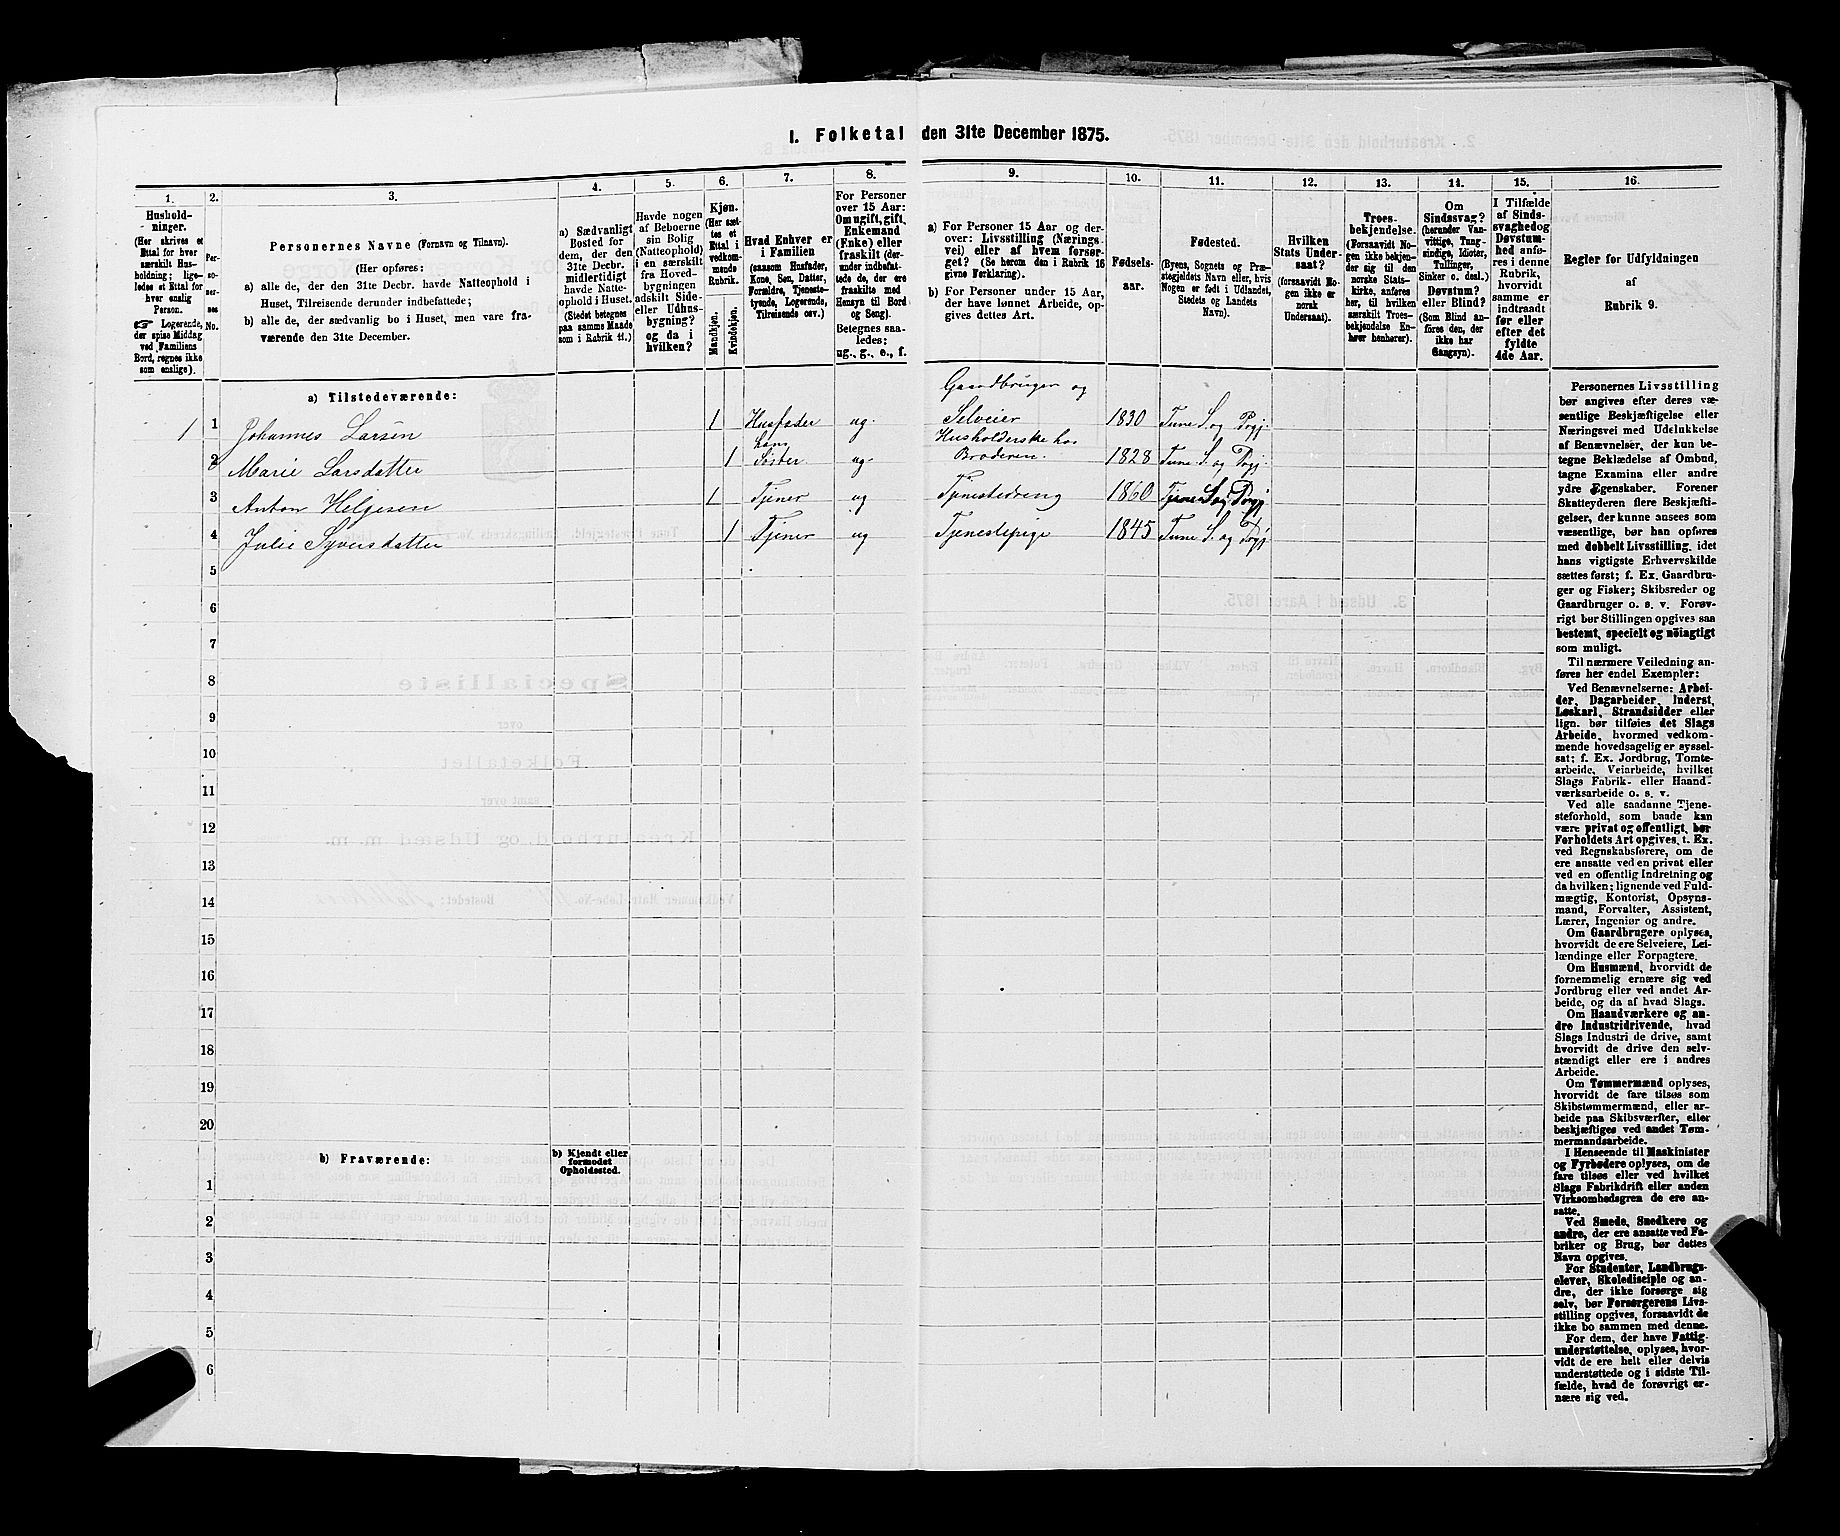 1. Folketal den 31te December 1875.
1. 2. 3. 4. 5. 6. 7. 8. 9. 10. 11. 12. 13. 14. 15. 16.
Hushold-
ninger.
(Her skrives et
Ettal for hver
særskilt Hus-
holdning; lige-
ledes et Ettal for
hver enslig
Person.
☞ Logerende,
der spise Middag
ved Familiens
Bord, regnes ikke
som enslige).
Per-
so-
ner-
nes
No.
Personernes Navne (Fornavn og Tilnavn).
(Her opføres:
a) alle de, der den 31te Decbr. havde Natteophold i
Huset, Tilreisende derunder indbefattede;
b) alle de, der sædvanlig bo i Huset, men vare fra-
værende den 31te December.
a) Sædvanligt
Bosted for
dem, der den
31te Decbr.
midlertidigt
havde Natte-
ophold i Huset.
(Stedet betegnes
paa samme Maade
som i Rubrik 11.)
Havde nogen
af Beboerne
sin Bolig
(Natteophold)
i en særskilt
fra Hoved-
bygningen
adskilt Side-
eller Udhus-
bygning?
og da i
hvilken?
Kjøn.
(Her sæt-
tes et
Ettal i
vedkom-
mende
Rubrik.
Mandkjøn.
Kvindekjøn.
Hvad Enhver er
i Familien
(saasom Husfader,
Kone, Søn, Datter,
Forældre, Tjeneste-
tyende, Logerende,
Tilreisende osv.)
For Personer
over 15 Aar:
Om ugift, gift,
Enkemand
(Enke) eller
fraskilt (der-
under indbefat-
tede de, der ere
fraskilte med
Hensyn til Bord
og Seng).
Betegnes saa-
ledes:
ug., g., e., f.
a) For Personer 15 Aar og der-
over: Livsstilling (Nærings-
vei) eller af hvem forsør-
get? (Se herom den i Rubrik 16
givne Forklaring).
b) For Personer under 15 Aar,
der have lønnet Arbeide, op-
gives dettes Art.
Fødsels-
aar.
Fødested.
(Byens, Sognets og Præ-
stegjeldets Navn eller, hvis
Nogen er født i Udlandet,
Stedets og Landets
Navn).
Hvilken
Stats Under-
saat?
(forsaavidt No-
gen ikke er
norsk
Undersaat).
Troes-
bekjendelse.
(Forsaavidt No-
gen ikke bekjen-
der sig til den
norske Stats-
kirke, anføres
her, til hvilken
særskilt Troes-
bekjendelse En-
hver henhører).
Om
Sindssvag?
(herunder Van-
vittige, Tung-
sindige, Idioter,
Tullinger,
Sinker o. desl.)
Døvstum?
eller Blind?
(Som Blind an-
føres den, der
ikke har
Gangsyn).
I Tilfælde
af Sinds-
svaghed og
Døvstum-
hed anfø-
res i denne
Rubrik,
hvorvidt
samme er
indtraadt
før eller
efter det
fyldte
4de Aar.
Regler for Udfyldningen
af
Rubrik 9.
a) Tilstedeværende:
Gaardbruger og
1 1 Johannes Larsen 1 Husfader ug. Selveier 1830 Tune S. og Prgj.
hans Husholderske hos
2 Marie Larsdatter 1 Søster ug. Broderen. 1828 Tune S. og Prgj.
3 Anton Helgesen 1 Tjener ug Tjenestedreng 1860 Tune S. og Prgj
4 Julie Syversdatter 1 Tjener ug Tjenestepige 1845 Tune S. og Prgj
5
6
7
8
9
10
11
12
13
14
15
16
17
18
19
20
b) Fraværende:
b) Kjendt eller
formodet
Opholdssted.
1
2
3
4
5
6
Personernes Livsstilling
bør angives efter deres væ-
sentlige Beskjæftigelse eller
Næringsvei med Udelukkelse
af Benævnelser, der kun be-
tegne Beklædelse af Ombud,
tagne Examina eller andre
ydre Egenskaber. Forener
Skatteyderen flere Beskjæfti-
gelser, der kunne ansees som
væsentlige, bør han opføres
med dobbelt Livsstilling, idet
hans vigtigste Erhvervskilde
sættes først; f. Ex. Gaardbru-
ger og Fisker; Skibsreder og
Gaardbruger o. s. v. Forøv-
rigt bør Stillingen opgives saa
bestemt, specielt og nøiagtigt
som muligt.
Til nærmere Veiledning an-
føres her endel Exempler:
Ved Benævnelserne: Arbei-
der, Dagarbeider, Inderst,
Løskarl, Strandsidder eller
lign. bør tilføies det Slags
Arbeide, hvormed vedkom-
mende hovedsagelig er syssel-
sat; f. Ex. Jordbrug, Tomte-
arbeide, Veiarbeide, hvilket
Slags Fabrik- eller Haand-
værksarbeide o. s. v.
Ved alle saadanne Tjene-
steforhold, som baade kan
være privat og offentligt, bør
Forholdets Art opgives, t. Ex.
ved Regnskabsførere, om de
ere ansatte ved en privat eller
ved en offentlig Indretning og
da hvilken; lignende ved Fuld-
mægtig, Kontorist, Opsyns-
mand, Forvalter, Assistent,
Lærer, Ingeniør og andre.
Om Gaardbrugere oplyses,
hvorvidt de ere Selveiere, Lei-
lændinge eller Forpagtere.
Om Husmænd, hvorvidt de
fornemmelig ernære sig ved
Jordbrug eller ved andet Ar-
beide, og da af hvad Slags.
Om Haandværkere og an-
dre Industridrivende, hvad
Slags Industri de drive, samt
hvorvidt de drive den selv-
stændigt eller ere i andres
Arbeide.
Om Tømmermænd oplyses,
hvorvidt de fare tilsøs som
Skibstømmermænd, eller ar-
beide paa Skibsværfter, eller
beskjæftiges ved andet Tøm-
mermandsarbeide.
I Henseende til Maskinister
og Fyrbødere oplyses, om de
fare tilsøs eller ved hvilket
Slags Fabrikdrift eller anden
Virksomhedsgren de ere an-
satte.
Ved Smede, Snedkere og
andre, der ere ansatte ved Fa-
briker og Brug, bør dettes
Navn opgives.
For Studenter, Landbrugs-
elever, Skoledisciple og an-
dre, der ikke forsørge sig
selv, bør Forsørgerens Livs-
stilling opgives, forsaavidt de
ikke bo sammen med denne.
For dem, der have Fattig-
understøttelse, oplyses, hvor-
vidt de ere helt eller delvis
understøttede og i sidste Til-
fælde, hvad de forøvrigt er-
nære sig ved.